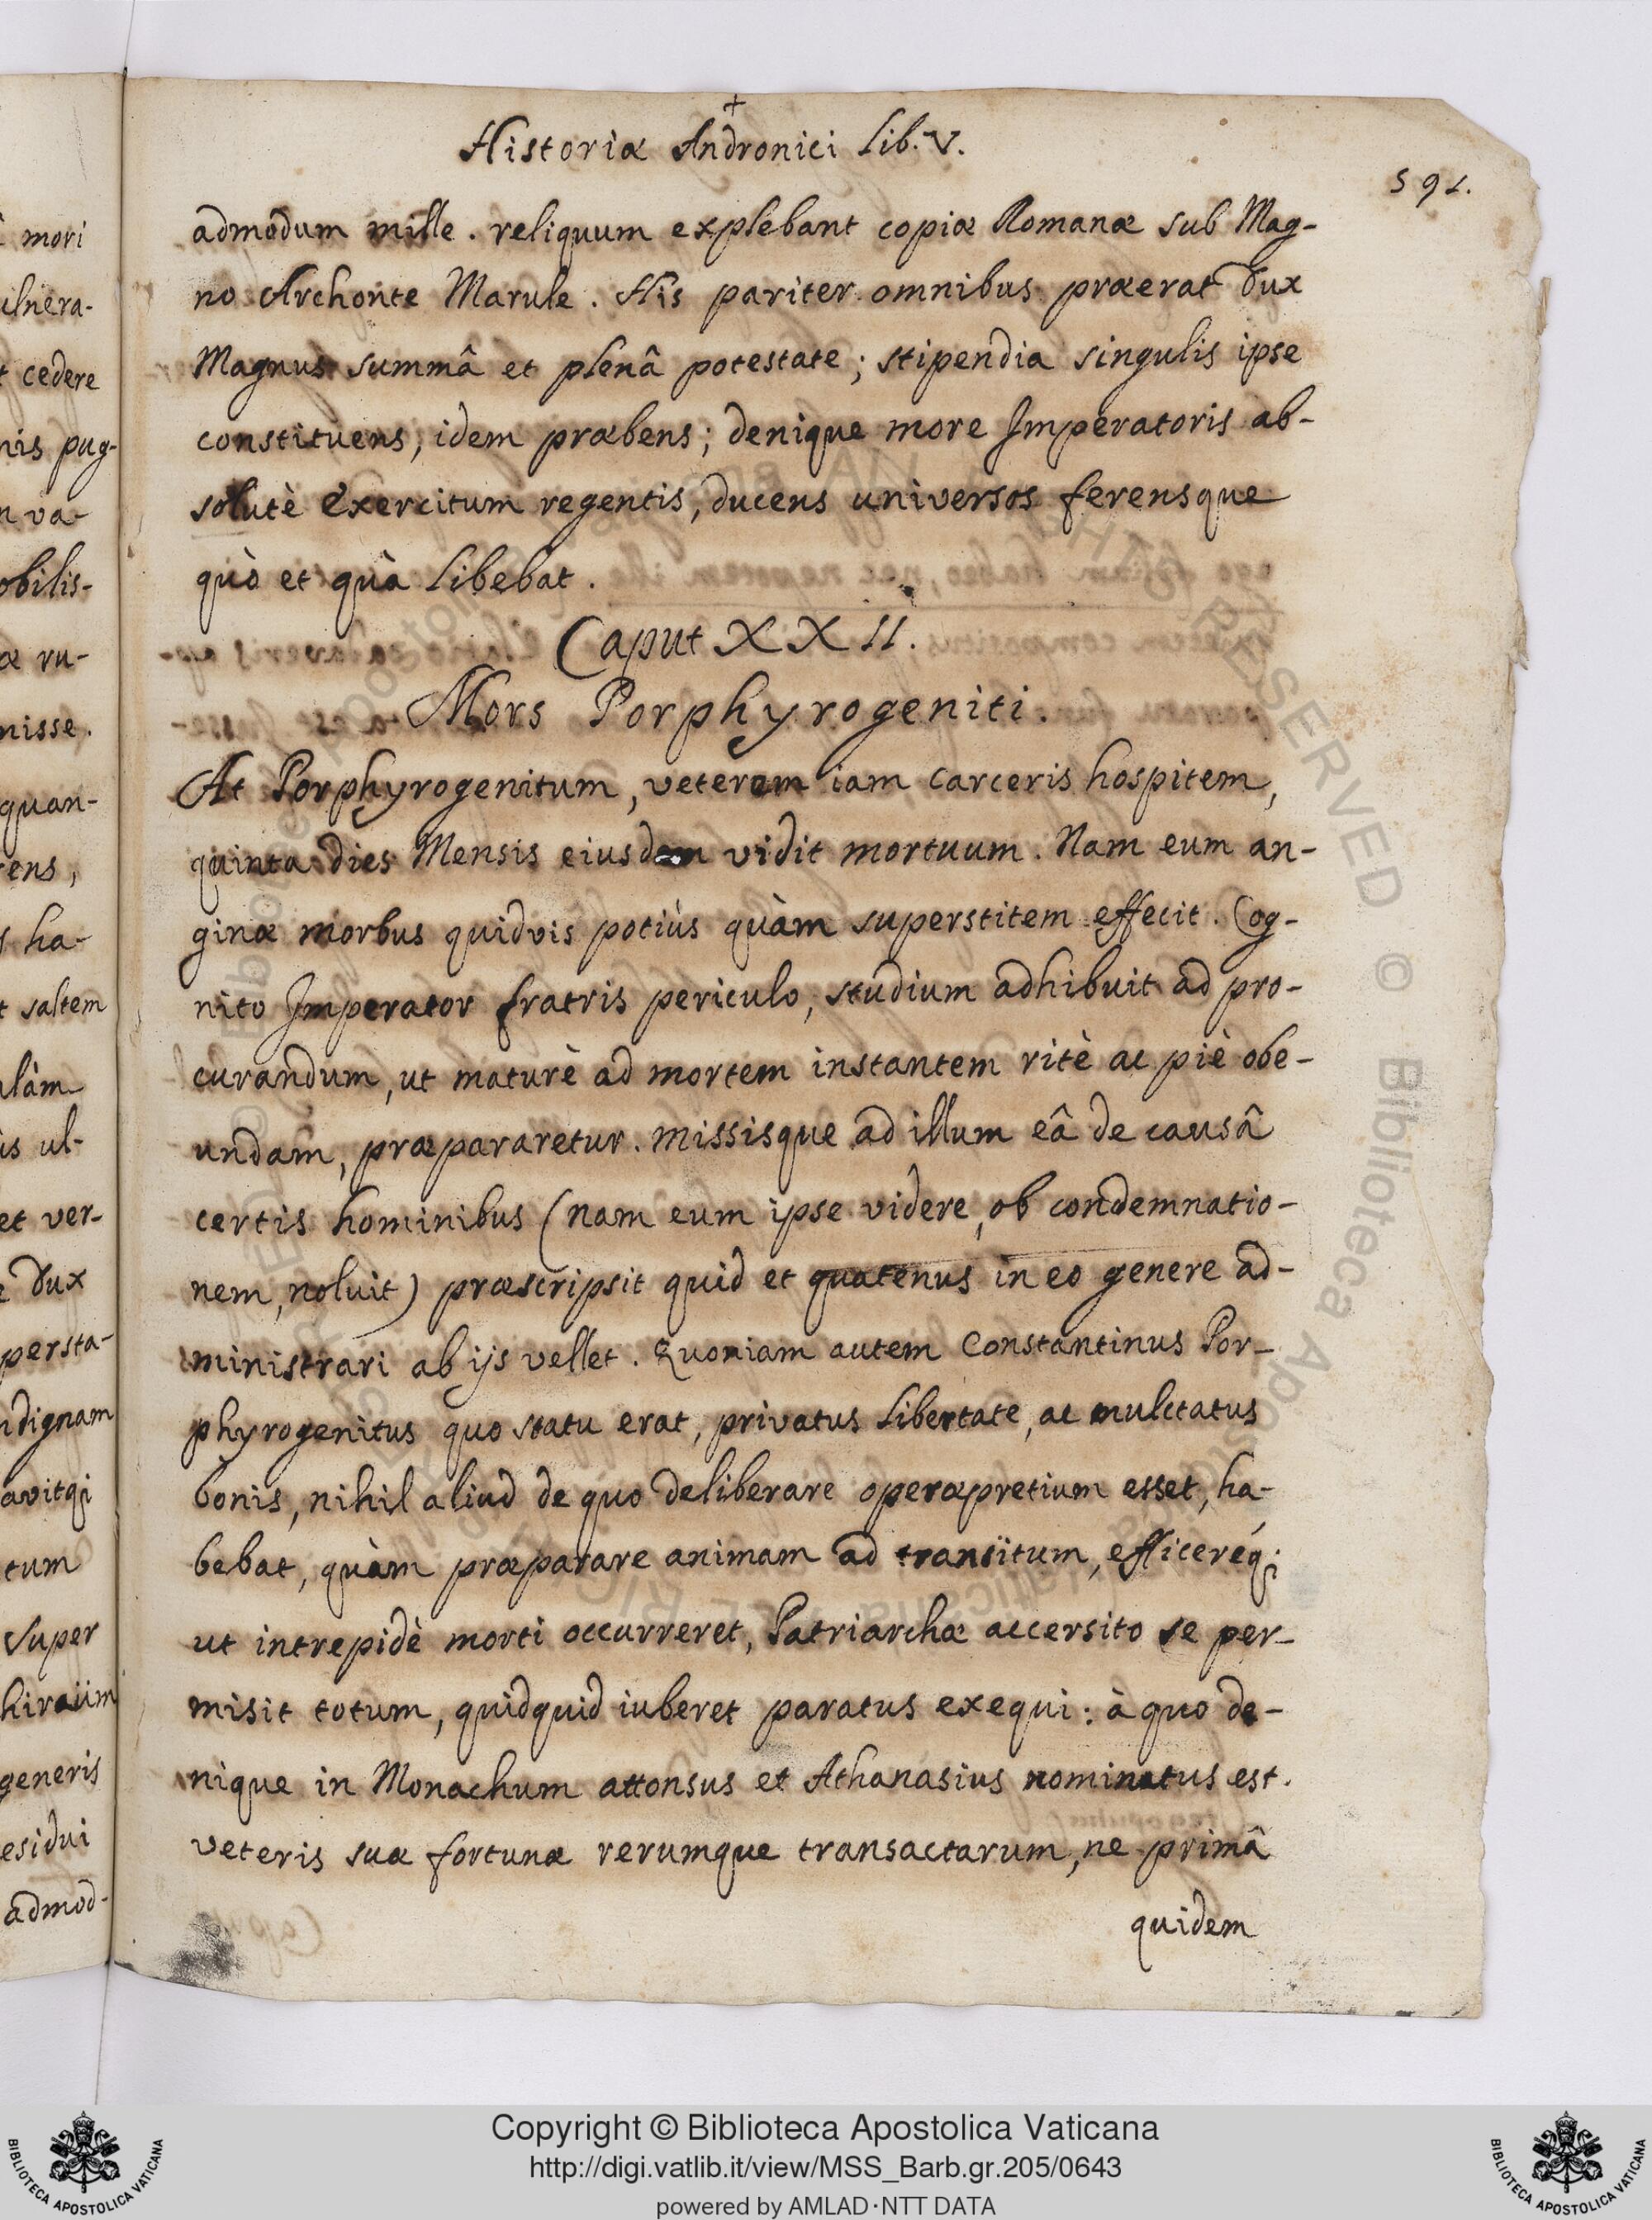 +
Historiæ Andronici Lib. V.
591.
admodum mille. reliquum explebant copiæ Romanæ sub Mag-
no Archonte Marule. His pariter omnibus præerat Dux
Magnus summâ et plenâ potestate; stipendia singulis ipse
constituens, idem præbens; denique more Imperatoris ab-
solutè exercitum regentis, ducens universos ferensque
quò et quà libebat.
Caput XXII.
Mors Porphyrogeniti.
At Porphyrogenitum, veterem iam carceris hospitem,
quinta dies Mensis eiusdem vidit mortuum. Nam eum an-
ginæ morbus quidvis potiùs quàm superstitem effecit. Cog-
nito Imperator fratris periculo, studium adhibuit ad pro-
curandum, ut maturè ad mortem instantem ritè ac piè obe-
undam, præpararetur. missisque ad illum eâ de causâ
certis hominibus (nam eum ipse videre, ob condemnatio-
nem, noluit) præscripsit quid et quatenus in eo genere ad-
ministrari ab ijs vellet. Quoniam autem Constantinus Por-
phyrogenitus quo statu erat, privatus libertate, ac mulctatus
bonis, nihil aliud de quo deliberare operæpretium esset, ha-
bebat, quàm præparare animam ad transitum, efficeréq;
ut intrepidè morti occurreret, Patriarchæ accersito se per-
misit totum, quidquid iuberet paratus exequi: à quo de-
nique in Monachum attonsus et Athanasius nominatus est.
veteris suæ fortunæ rerumque transactarum, ne primâ
quidem
mori
ulnera-
cedere
nis pug-
va-
obilis-
æ ru-
nisse.
quan-
ens,
ha-
saltem
ul-
et ver-
Dux
persta-
ndignam
avitq;
tum
super
generis
esidui
admod-
Copyright © Biblioteca Apostolica Vaticana
http://digi.vatlib.it/view/MSS_Barb.gr.205/0643
powered by AMLAD·NTT DATA
BIBLIOTECA APOSTOLICA VATICANA
BIBLIOTECA APOSTOLICA VATICANA